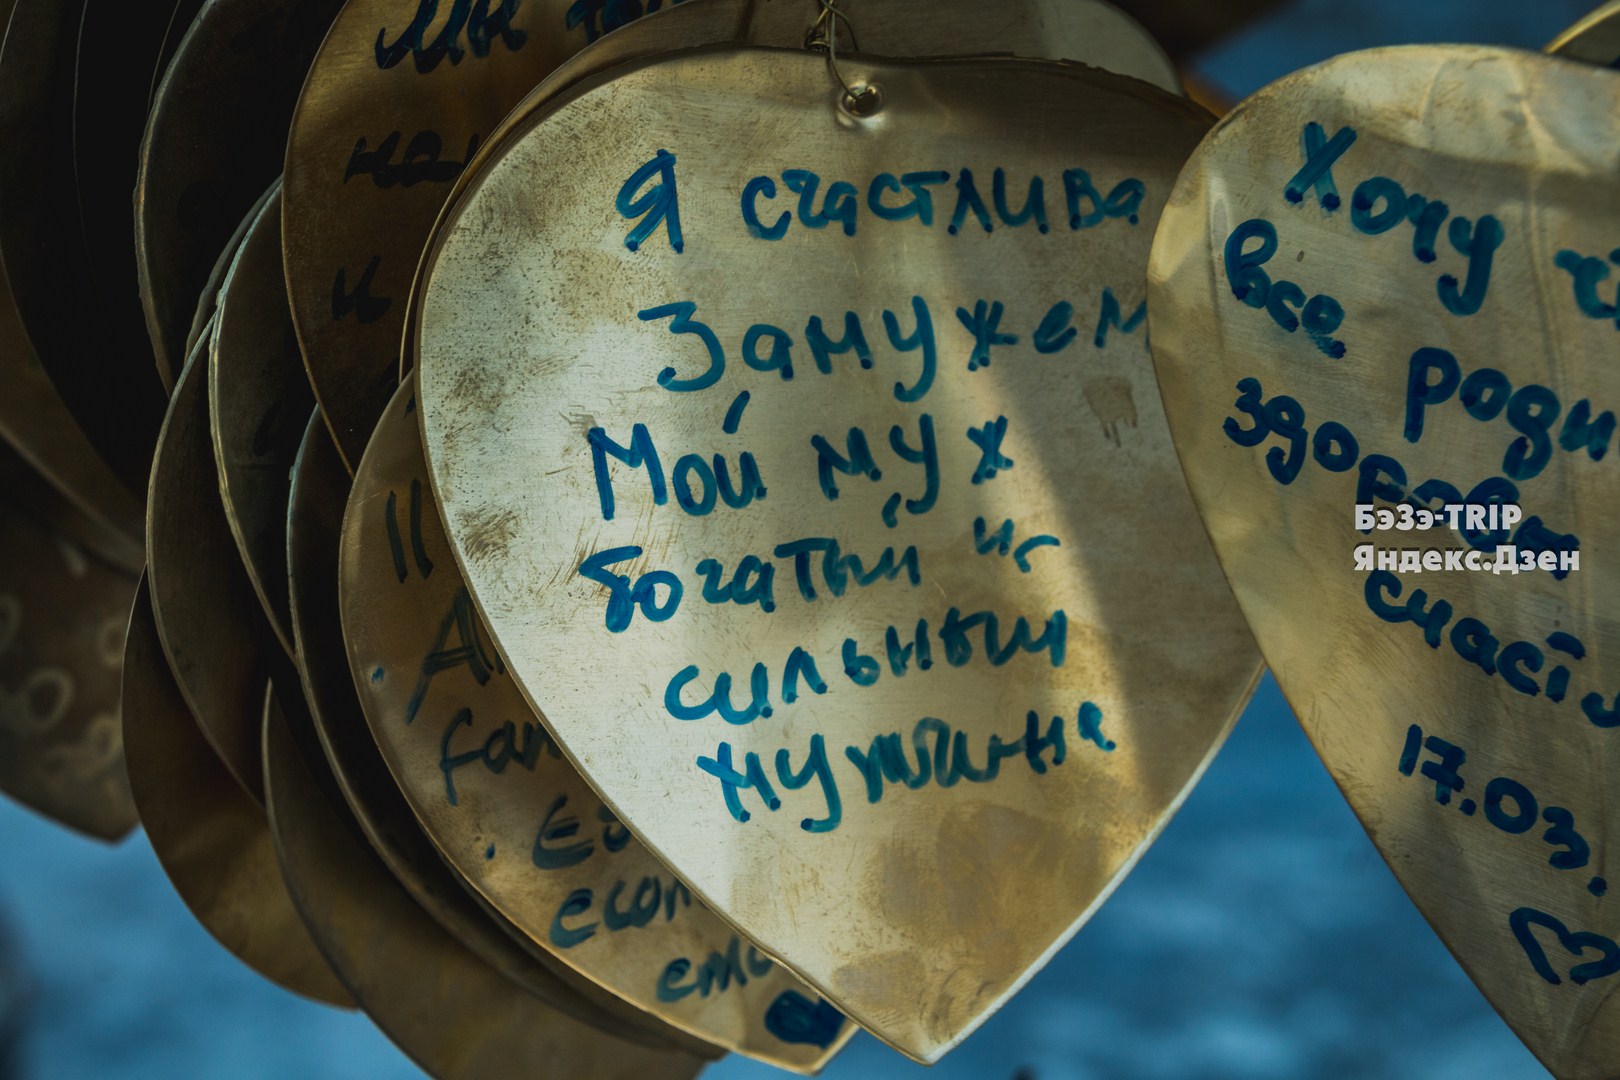 Я счастлива
Замужем
Мой муж
богатый и
сильный
мужчина
Хочу
все
роди
здоровы
счаст
17.03.
Мы
fam
БЭЗЭ-TRIP
Яндекс.Дзен